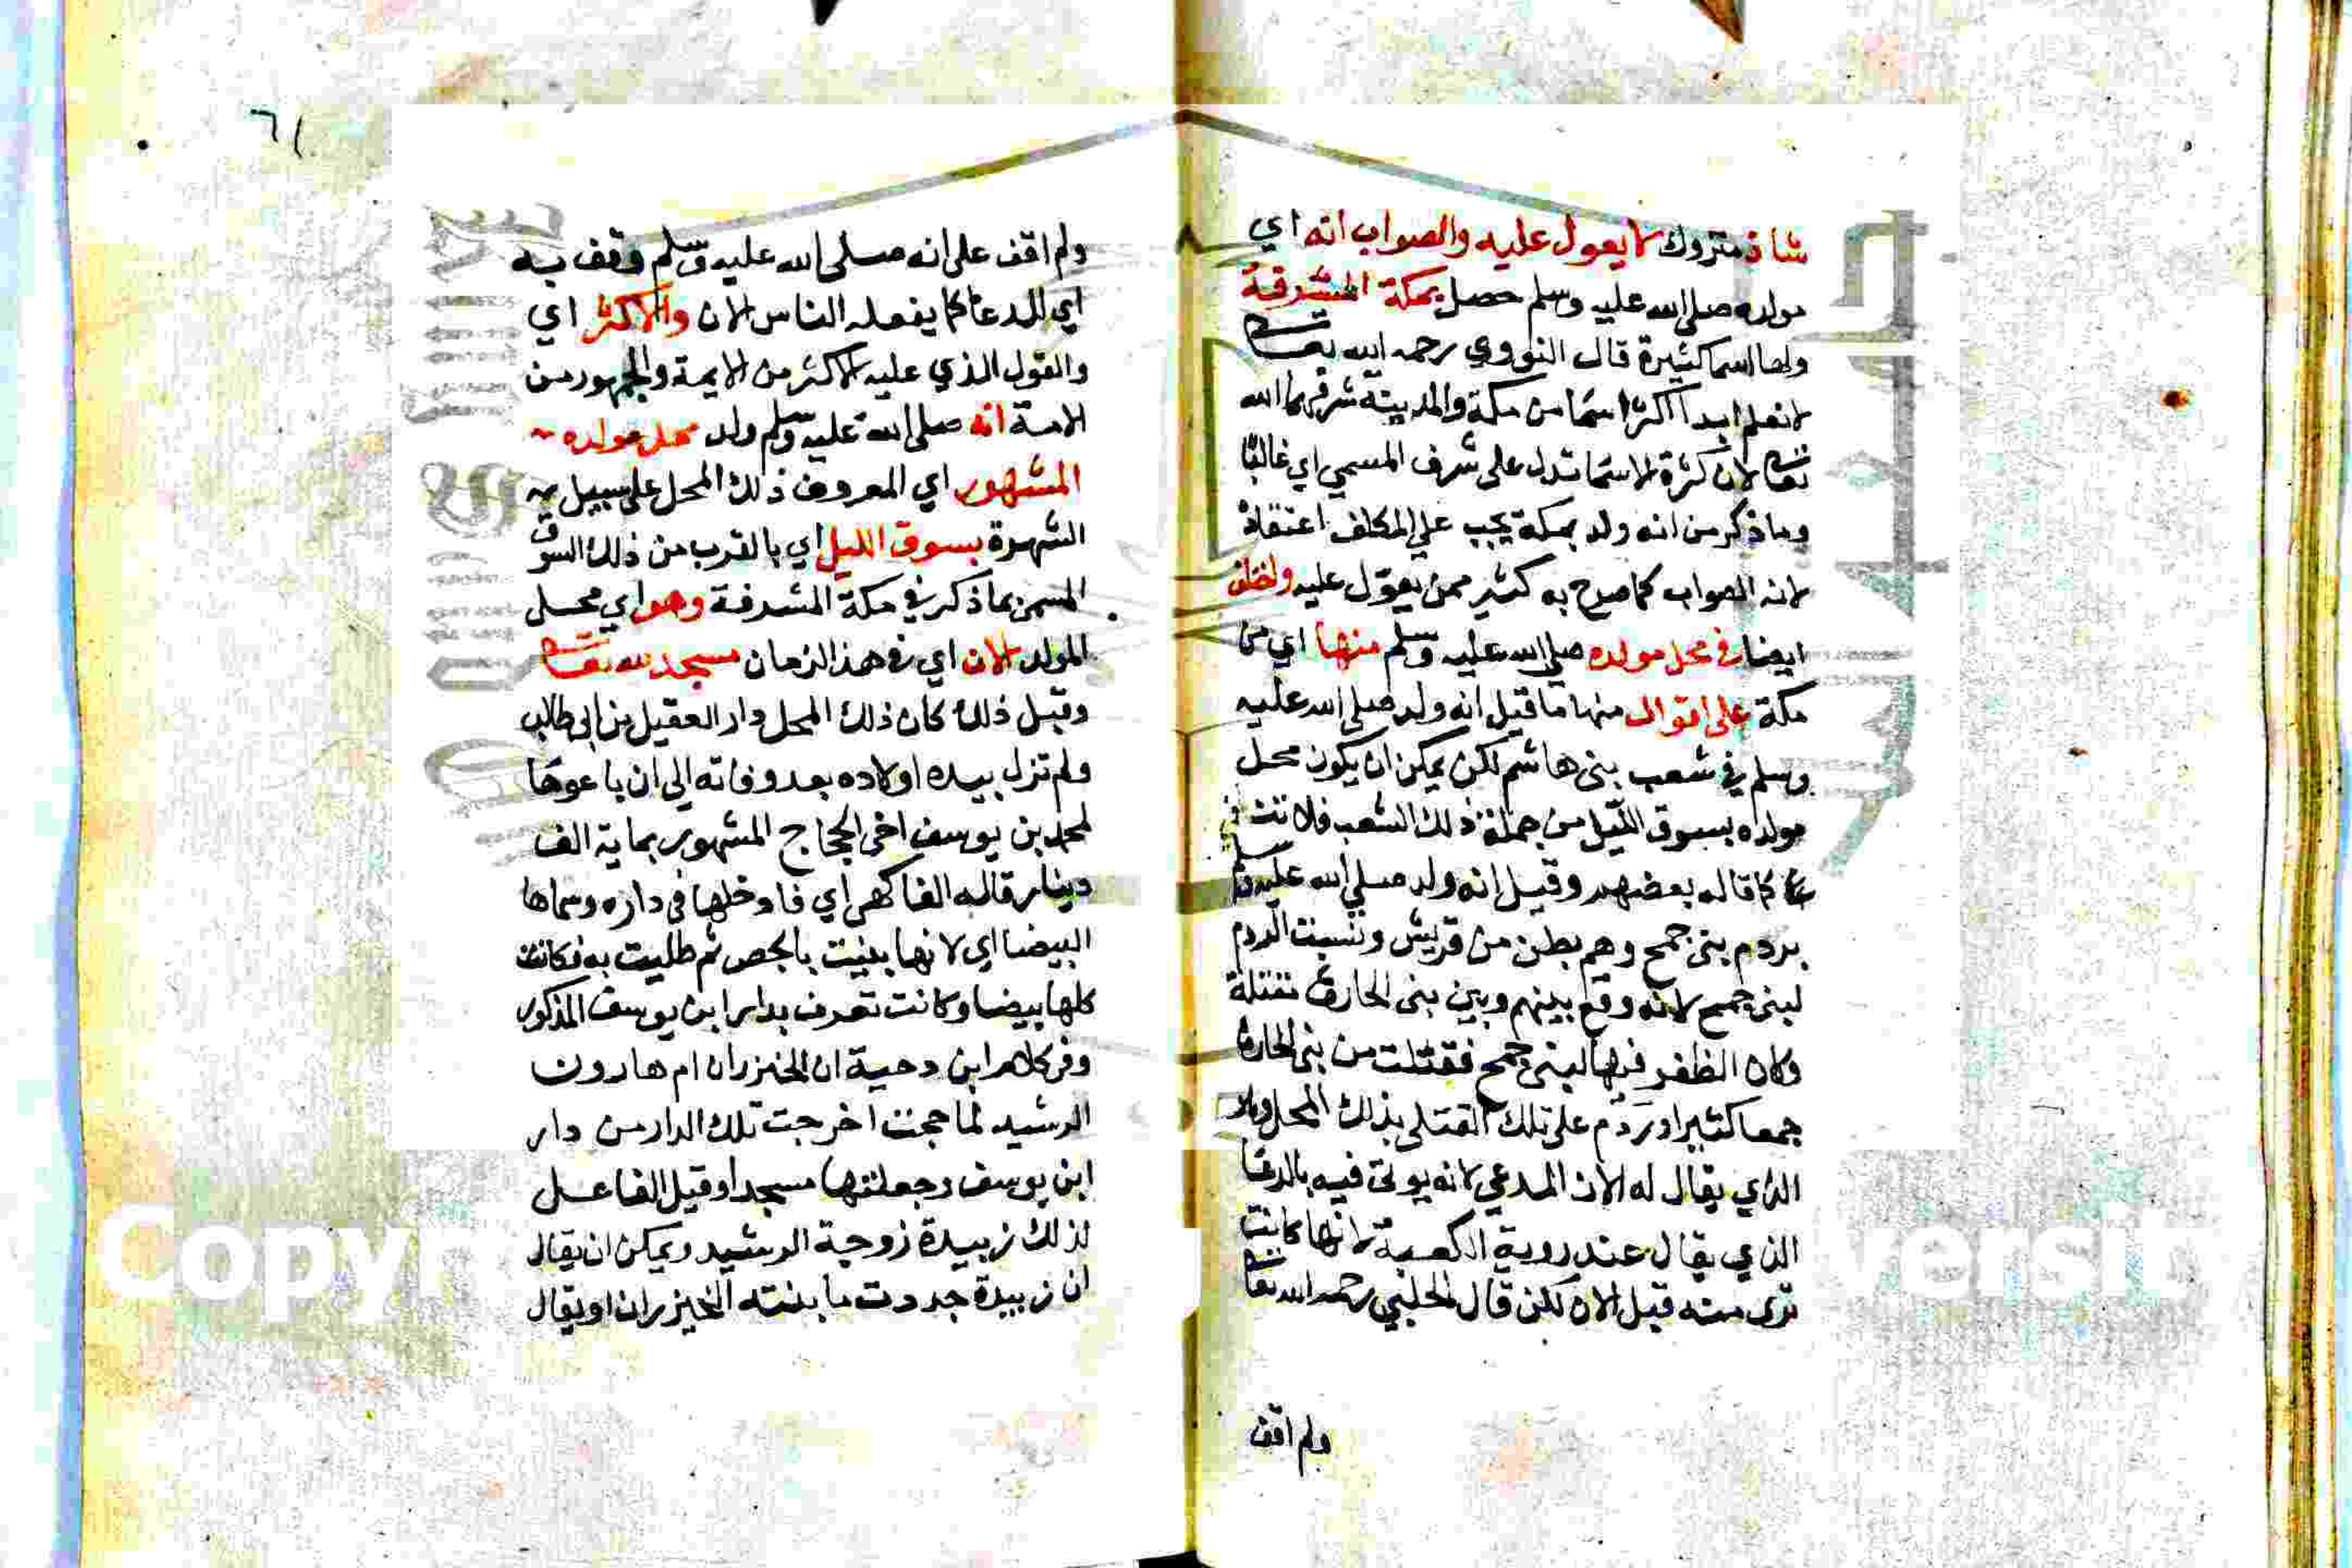 شاذ متروك لا يعول عليه والصواب انه اي
مولده صلى الله عليه وسلم حصل بمكة المشرفة
ولها اسما كثيرة قال النووي رحمه الله تعالى
لا نعلم ابدا اكثر اسما من مكة والمدينة شرفهما الله
تعالى لان كثرة الاسما تدل على شرف المسمى اي غالبا
وما ذكر من انه ولد بمكة يجب على المكلف اعتقاده
لانه الصواب كما صرح به كثير ممن يعول عليه واختلف
ايضا في محل مولده صلى الله عليه وسلم منها اي من
مكة على اقوال منها ما قيل انه ولد صلى الله عليه
وسلم في شعب بني هاشم لكن يمكن ان يكون محل
مولده بسوق الليل من جملة ذلك الشعب فلا تنافي
كما قاله بعضهم وقيل انه ولد صلى الله عليه وسلم
بردم بني جمح وهم بطن من قريش ونسبت الردم
لبني جمح لانه وقع بينهم وبين بني الحارث مقتلة
وكان الظفر فيها لبني جمح فقتلت من بني الحارث
جمعا كثيرا وردم على تلك القتلى بذلك المحل وهو
الذي يقال له الان المدعي لانه يوتى فيه بالدعا
الذي يقال عند روية الكعبة لانها كانت
ترى منه قبل الان لكن قال الحلبي رحمه الله تعالى
ولم اقف
٦١
ولم اقف على انه صلى الله عليه وسلم وقف به
اي للدعا كما يفعله الناس الان والاكثر اي
والقول الذي عليه الاكثر من الايمة والجمهور من
الامة انه صلى الله عليه وسلم ولد محل مولده
المشهور اي المعروف ذلك المحل على سبيل
الشهرة بسوق الليل اي بالقرب من ذلك السوق
المسمى بما ذكر في مكة المشرفة وهو اي محل
المولد الان اي في هذا الزمان مسجد لله تعالى
وقبل ذلك كان ذلك المحل دار العقيل بن ابي طالب
ولم تزل بيده اولاده بعد وفاته الى ان باعوها
لمحمد بن يوسف اخي الحجاج المشهور بماية الف
دينار قاله الفاكهي اي فادخلها في داره وسماها
البيضا اي لانها بنيت بالجص ثم طليت به فكانت
كلها بيضا وكانت تعرف بدار ابن يوسف المذكور
وفي كلام ابن دحية ان الخيزران ام هارون
الرشيد لما حجت اخرجت تلك الدار من دار
ابن يوسف وجعلتها مسجدا وقيل الفاعل
لذلك زبيدة زوجة الرشيد ويمكن ان يقال
ان زبيدة جددت ما بنته الخيزران او يقال